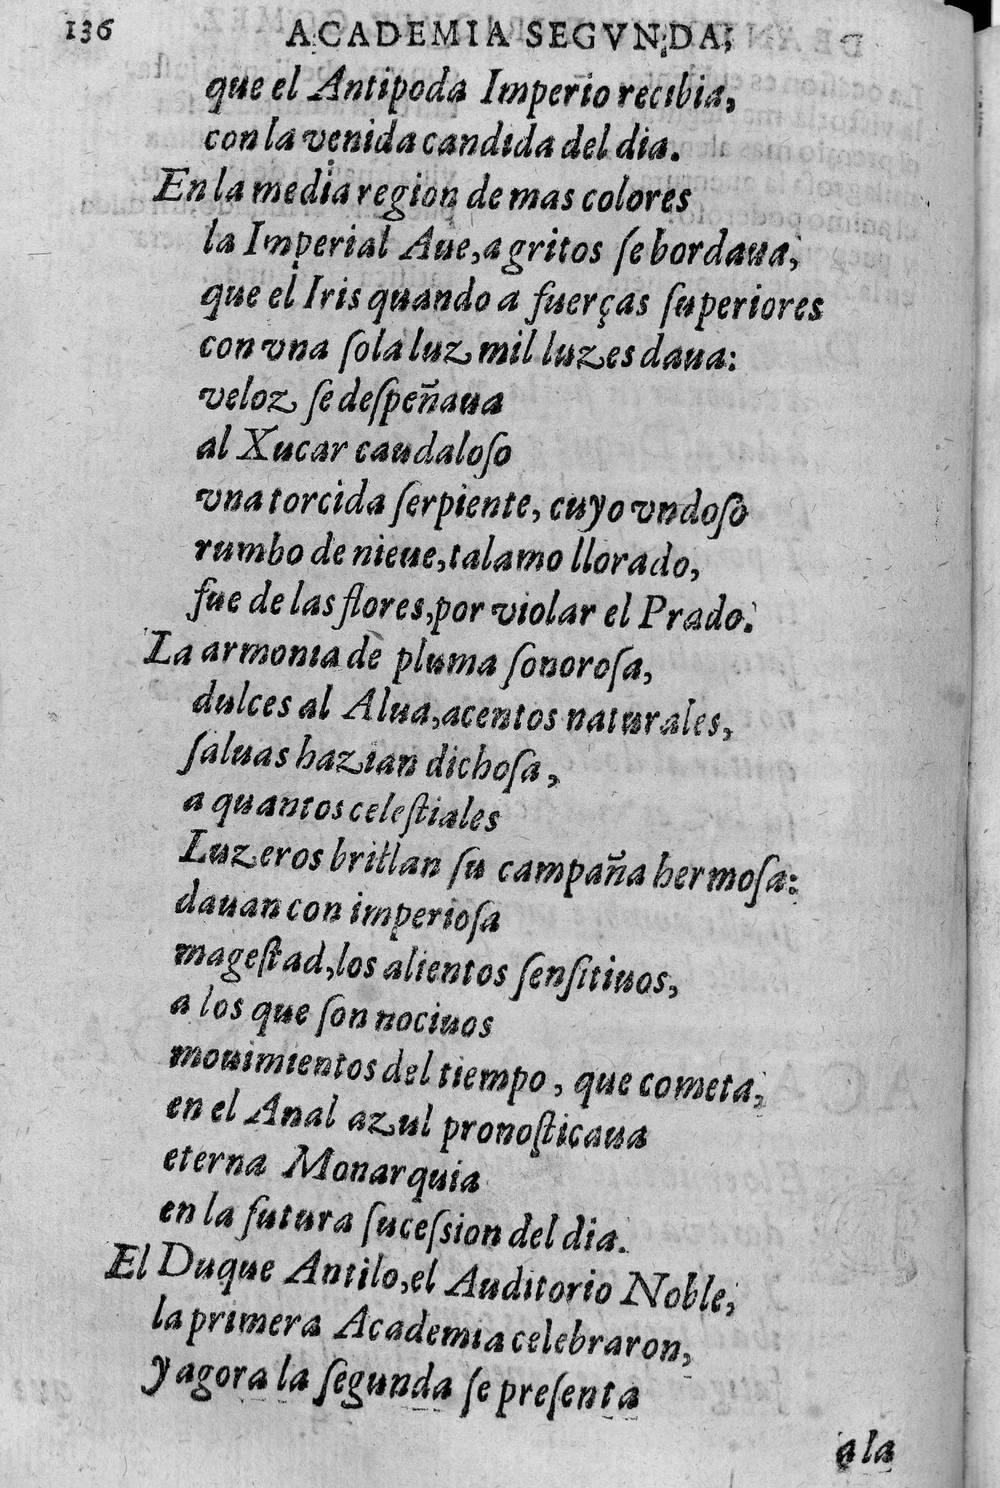 136 ACADEMIA SEGVNDA,
que el Antipoda Imperio recibia,
con la venida candida del dia.
En la media region de mas colores
la Imperial Aue, a gritos ſe bordaua,
que el Iris quando a fuerças ſuperiores
con vna ſola luz mil luzes daua:
veloz ſe deſpeñaua
al Xucar caudaloſo
vna torcida ſerpiente, cuyo vndoſo
rumbo de nieue, talamo llorado,
fue de las flores, por violar el Prado.
La armonia de pluma ſonoroſa,
dulces al Alua, acentos naturales,
ſaluas hazian dichoſa,
a quantos celeſtiales
Luzeros brillan ſu campaña hermoſa:
dauan con imperioſa
mageſtad, los alientos ſenſitiuos,
a los que ſon nociuos
mouimientos del tiempo, que cometa,
en el Anal azul pronoſticaua
eterna Monarquia
en la futura ſuceſsion del dia.
El Duque Antilo, el Auditorio Noble,
la primera Academia celebraron,
y agora la ſegunda ſe preſenta
a la